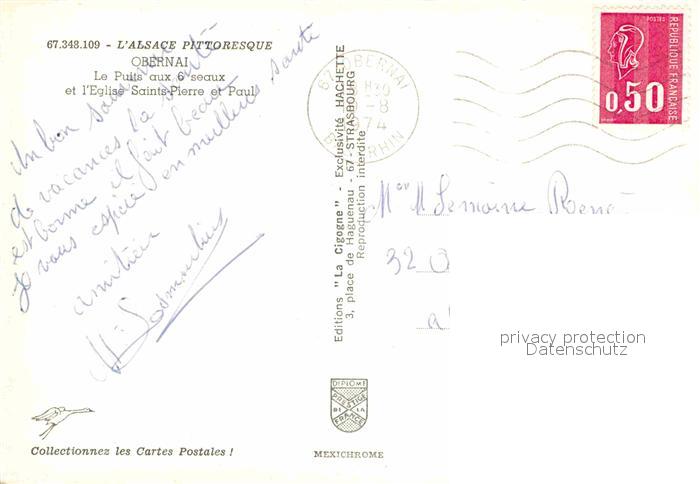 67.348.109 - L'ALSACE PITTORESQUE
OBERNAI
Le Puits aux 6 seaux
et l'Eglise Saints-Pierre et Paul
Un bon souvenir
de vacances la santé
est bonne il fait beau
je vous espère en meilleure santé
amitiés
Editions "La Cigogne" - Exclusivité HACHETTE
3, place de Haguenau - 67 - STRASBOURG
Reproduction interdite
67 OBERNAI
-8
1974
BAS RHIN
POSTES
REPUBLIQUE FRANÇAISE
0,50
M Lemoine René
320
a
privacy protection
Datenschutz
DIPLOME
PRESTIGE
DE LA
FRANCE
MEXICHROME
Collectionnez les Cartes Postales !